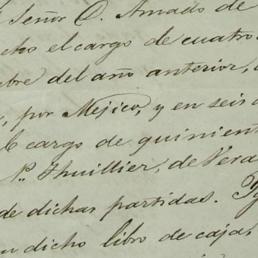 Señor D. Amado de
el cargo de cuatro
bre del año anterior,
, por Mejico, y en seis d
cargo de quinient
Thuillier, de Verd
de dichas partidas.
dicho libro de cajas